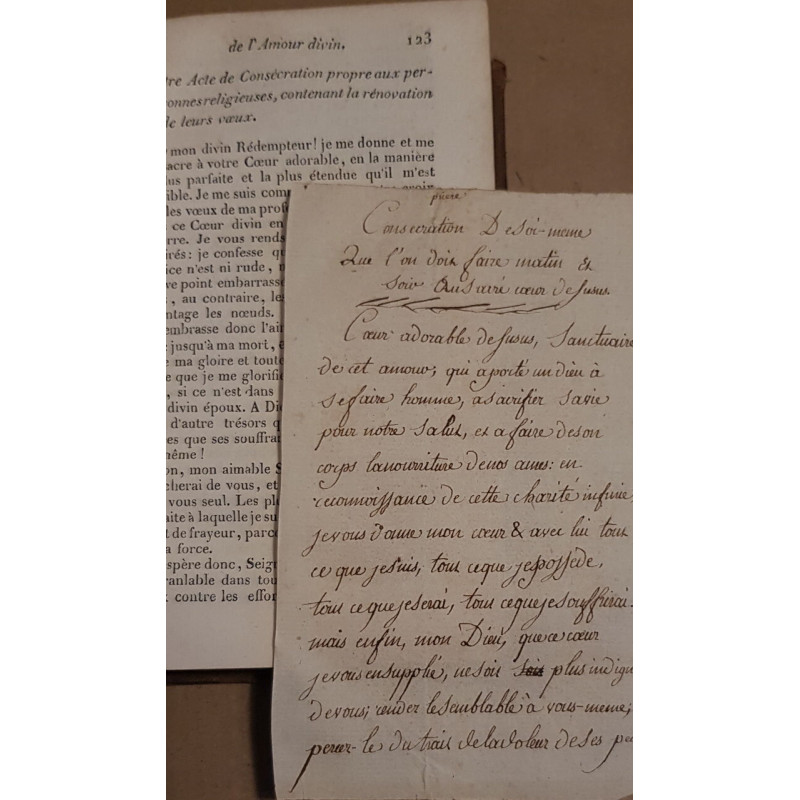 de l'Amour divin. 123
tre Acte de Consécration propre aux per-
onnes religieuses, contenant la rénovation
de leurs vœux.
mon divin Rédempteur! je me donne et me
acre à votre Cœur adorable, en la manière
us parfaite et la plus étendue qu'il m'est
ible. Je me suis com
les vœux de ma prof
ce Cœur divin en
rre. Je vous rends
irés: je confesse q
ice n'est ni rude,
ve point embarrass
, au contraire, le
ntage les nœuds.
mbrasse donc l'ai
jusqu'à ma mort,
ma gloire et toute
e que je me glorifi
, si ce n'est dans
divin époux. A Di
d'autre trésors q
es que ses souffra
même!
on, mon aimable S
cherai de vous, et
vous seul. Les pl
aite à laquelle je su
t de frayeur, parc
a force.
spère donc, Seig
ranlable dans tou
x contre les effor
priere
Consecration De Soi-meme
Que l'on doit faire matin &
Soir Au Sacré cœur de Jesus.
Cœur adorable de Jusus, Sanctuaire
de cet amour, qui a porté un dieu à
se faire homme, a sacrifier sa vie
pour notre Salut, et a faire de son
corps la nourriture de nos ames: en
reconnoissance de cette charité infinie,
je vous donne mon cœur & avec lui tout
ce que je suis, tout ce que je possède,
tout ce que je serai, tout ce que je souffrirai.
mais enfin, mon Dieu, que ce cœur
je vous en supplié, ne soit plus indign
de vous; rendez le semblable à vous-meme,
percer-le du trait de la doleur de ses pe